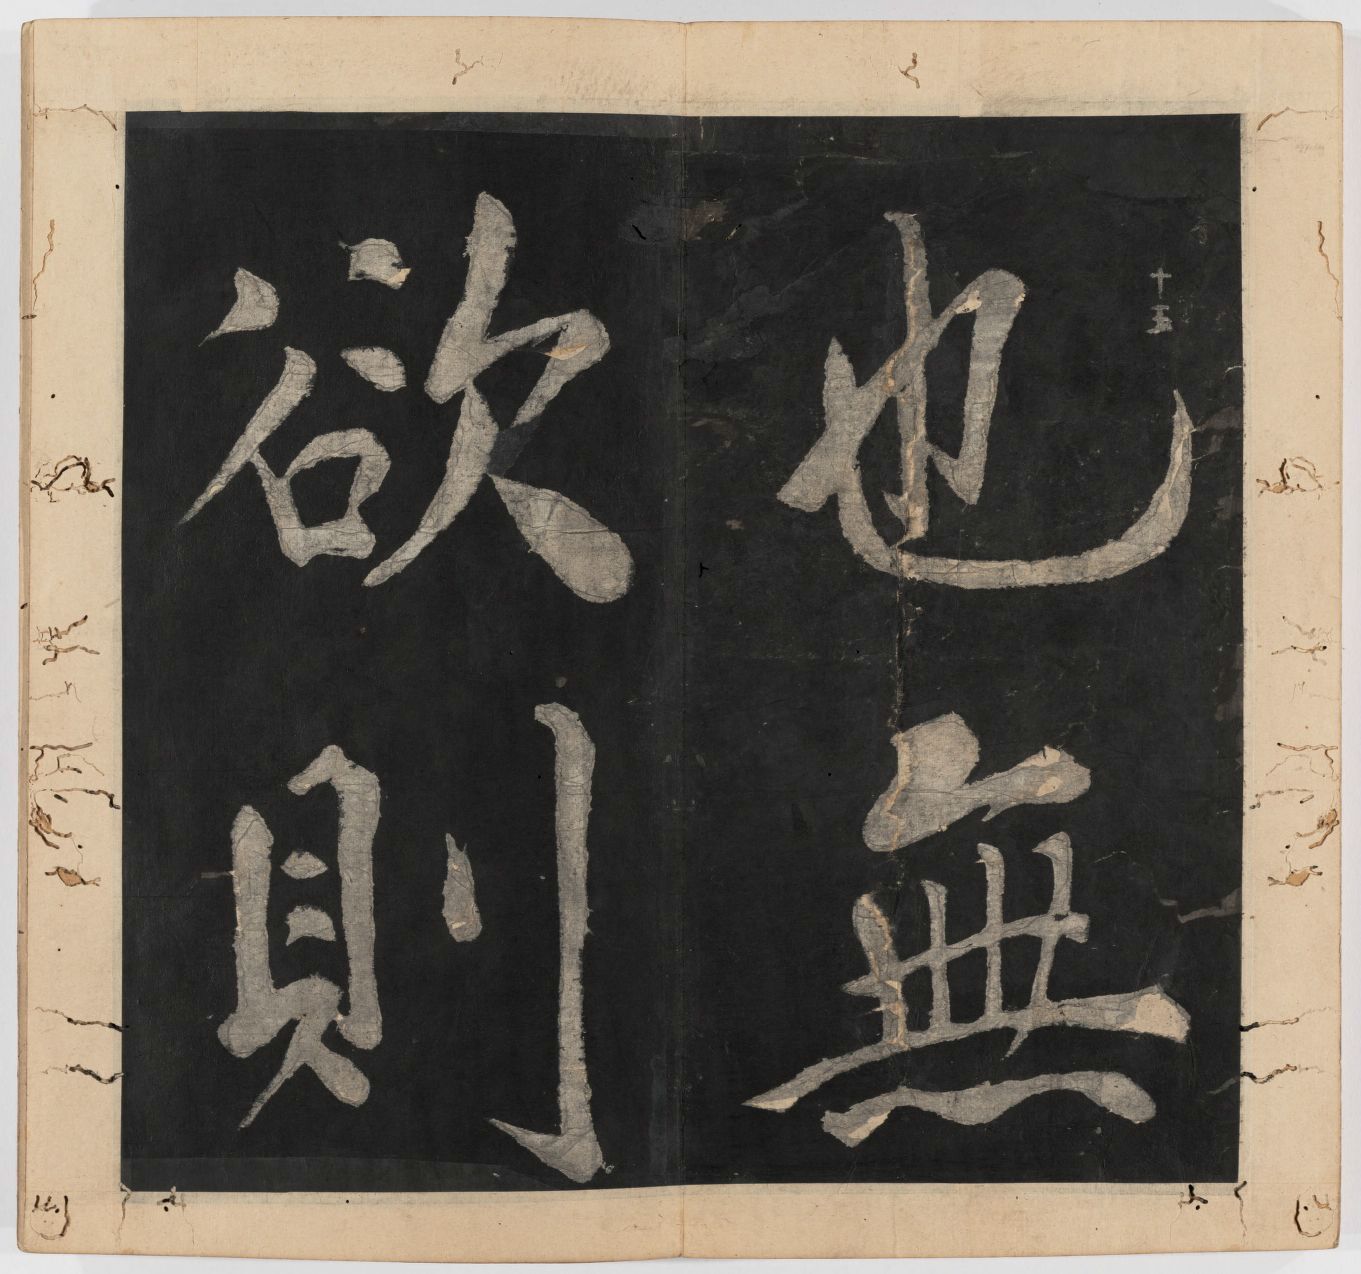 十五
也無
欲則